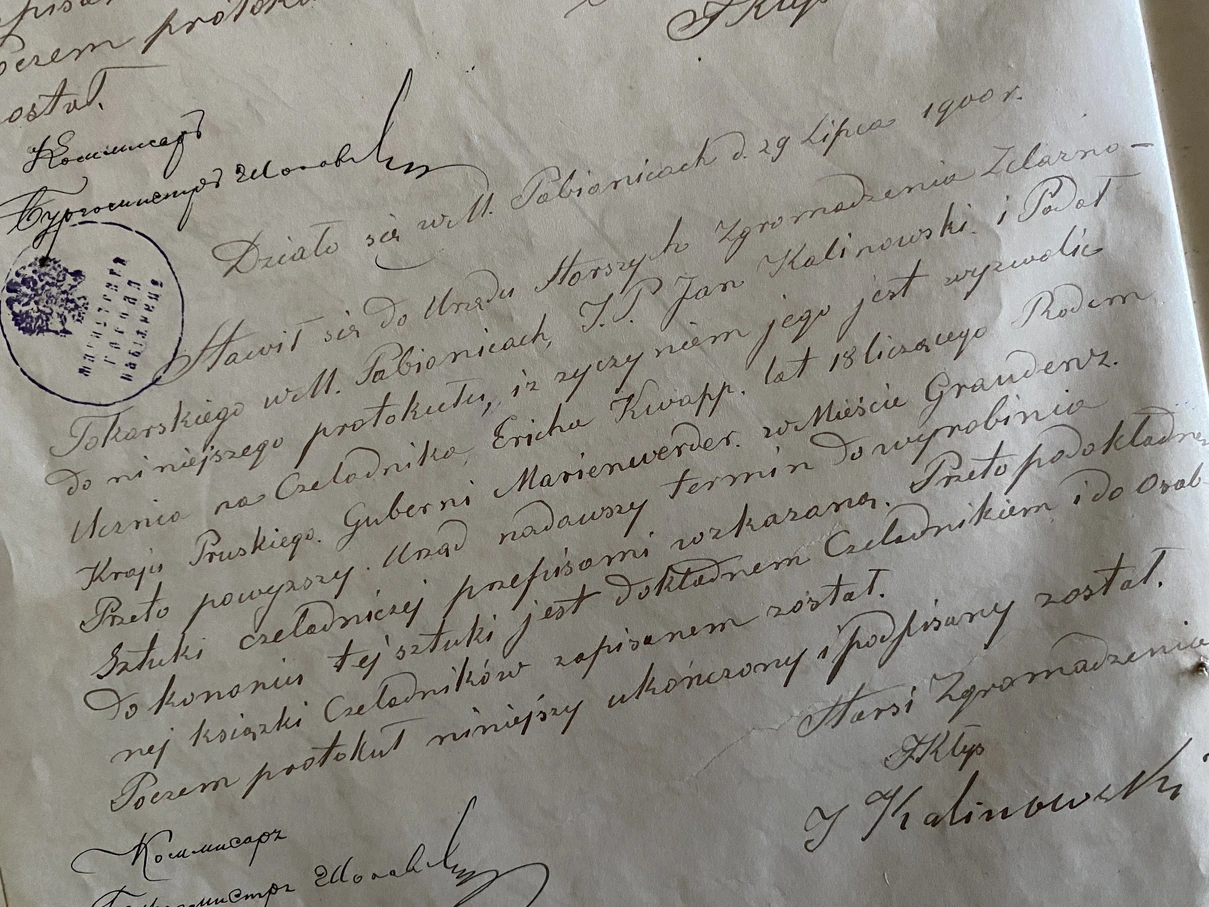 protoko
został.
F Kłys
Коммисаръ
Бургомистръ
магистратъ
города
пабіанице
Działo się w M. Pabianicach d. 29 Lipca 1900 r.
Stawił się do Urzędu Starszych Zgromadzenia Żelazno-
Tokarskiego w M. Pabianicach, J. P. Jan Kalinowski i Podał
do niniejszego protokułu, iż życzyniem jego jest wyzwolić
Ucznia na Czeladnika, Ericha Knapp. lat 18 liczącego Rodem
Kraju Pruskiego. Guberni Marienwerder. w Mieście Graudenz.
Przeto powyższy. Urząd nadawszy termin do wyrobinia
Sztuki czeladniczej przepisami wzkazaną. Przeto po dokładne
do konaniu tej sztuki jest dokładnem Czeladnikiem i do Osob-
nej książki Czeladników zapisanem został.
Poczem protokuł niniejszy ukończony i podpisany został.
Starsi Zgromadzenia
F Kłys
J Kalinowski
Коммисаръ